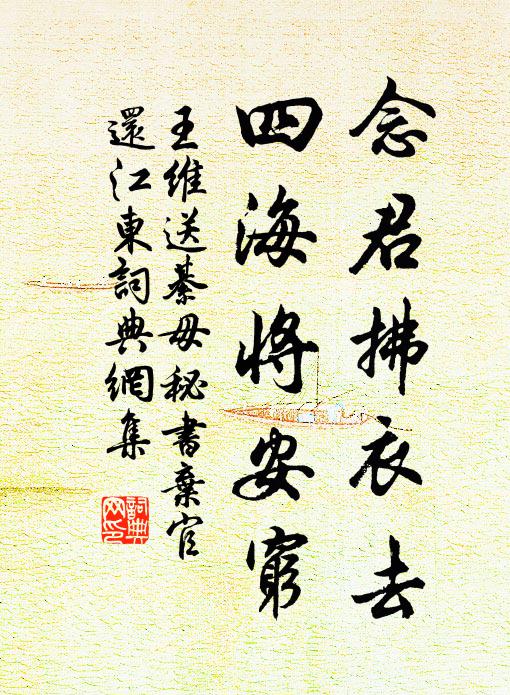 念君拂衣去
四海將安窮
王維送綦毋秘書棄官
還江東詞典網集
詞典網印